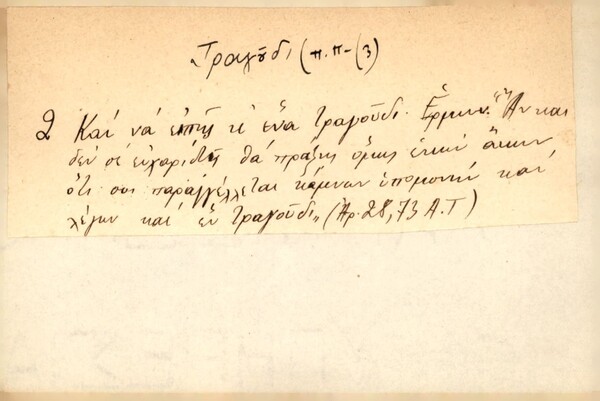 Τραγοῦδι (π.π-(3)
2 Καί νά εἰπῇς κι ἕνα τραγοῦδι. Ἑρμην. "Ἄν και
δεν σέ εὐχαριστῇ θά πράξῃς ὅμως
ὅτι σου παραγγέλλεται κάμνων ὑπομονήν καί
λέγων καί ἕν τραγοῦδι„ (Ἀρ. 28, 73 Α.Τ)